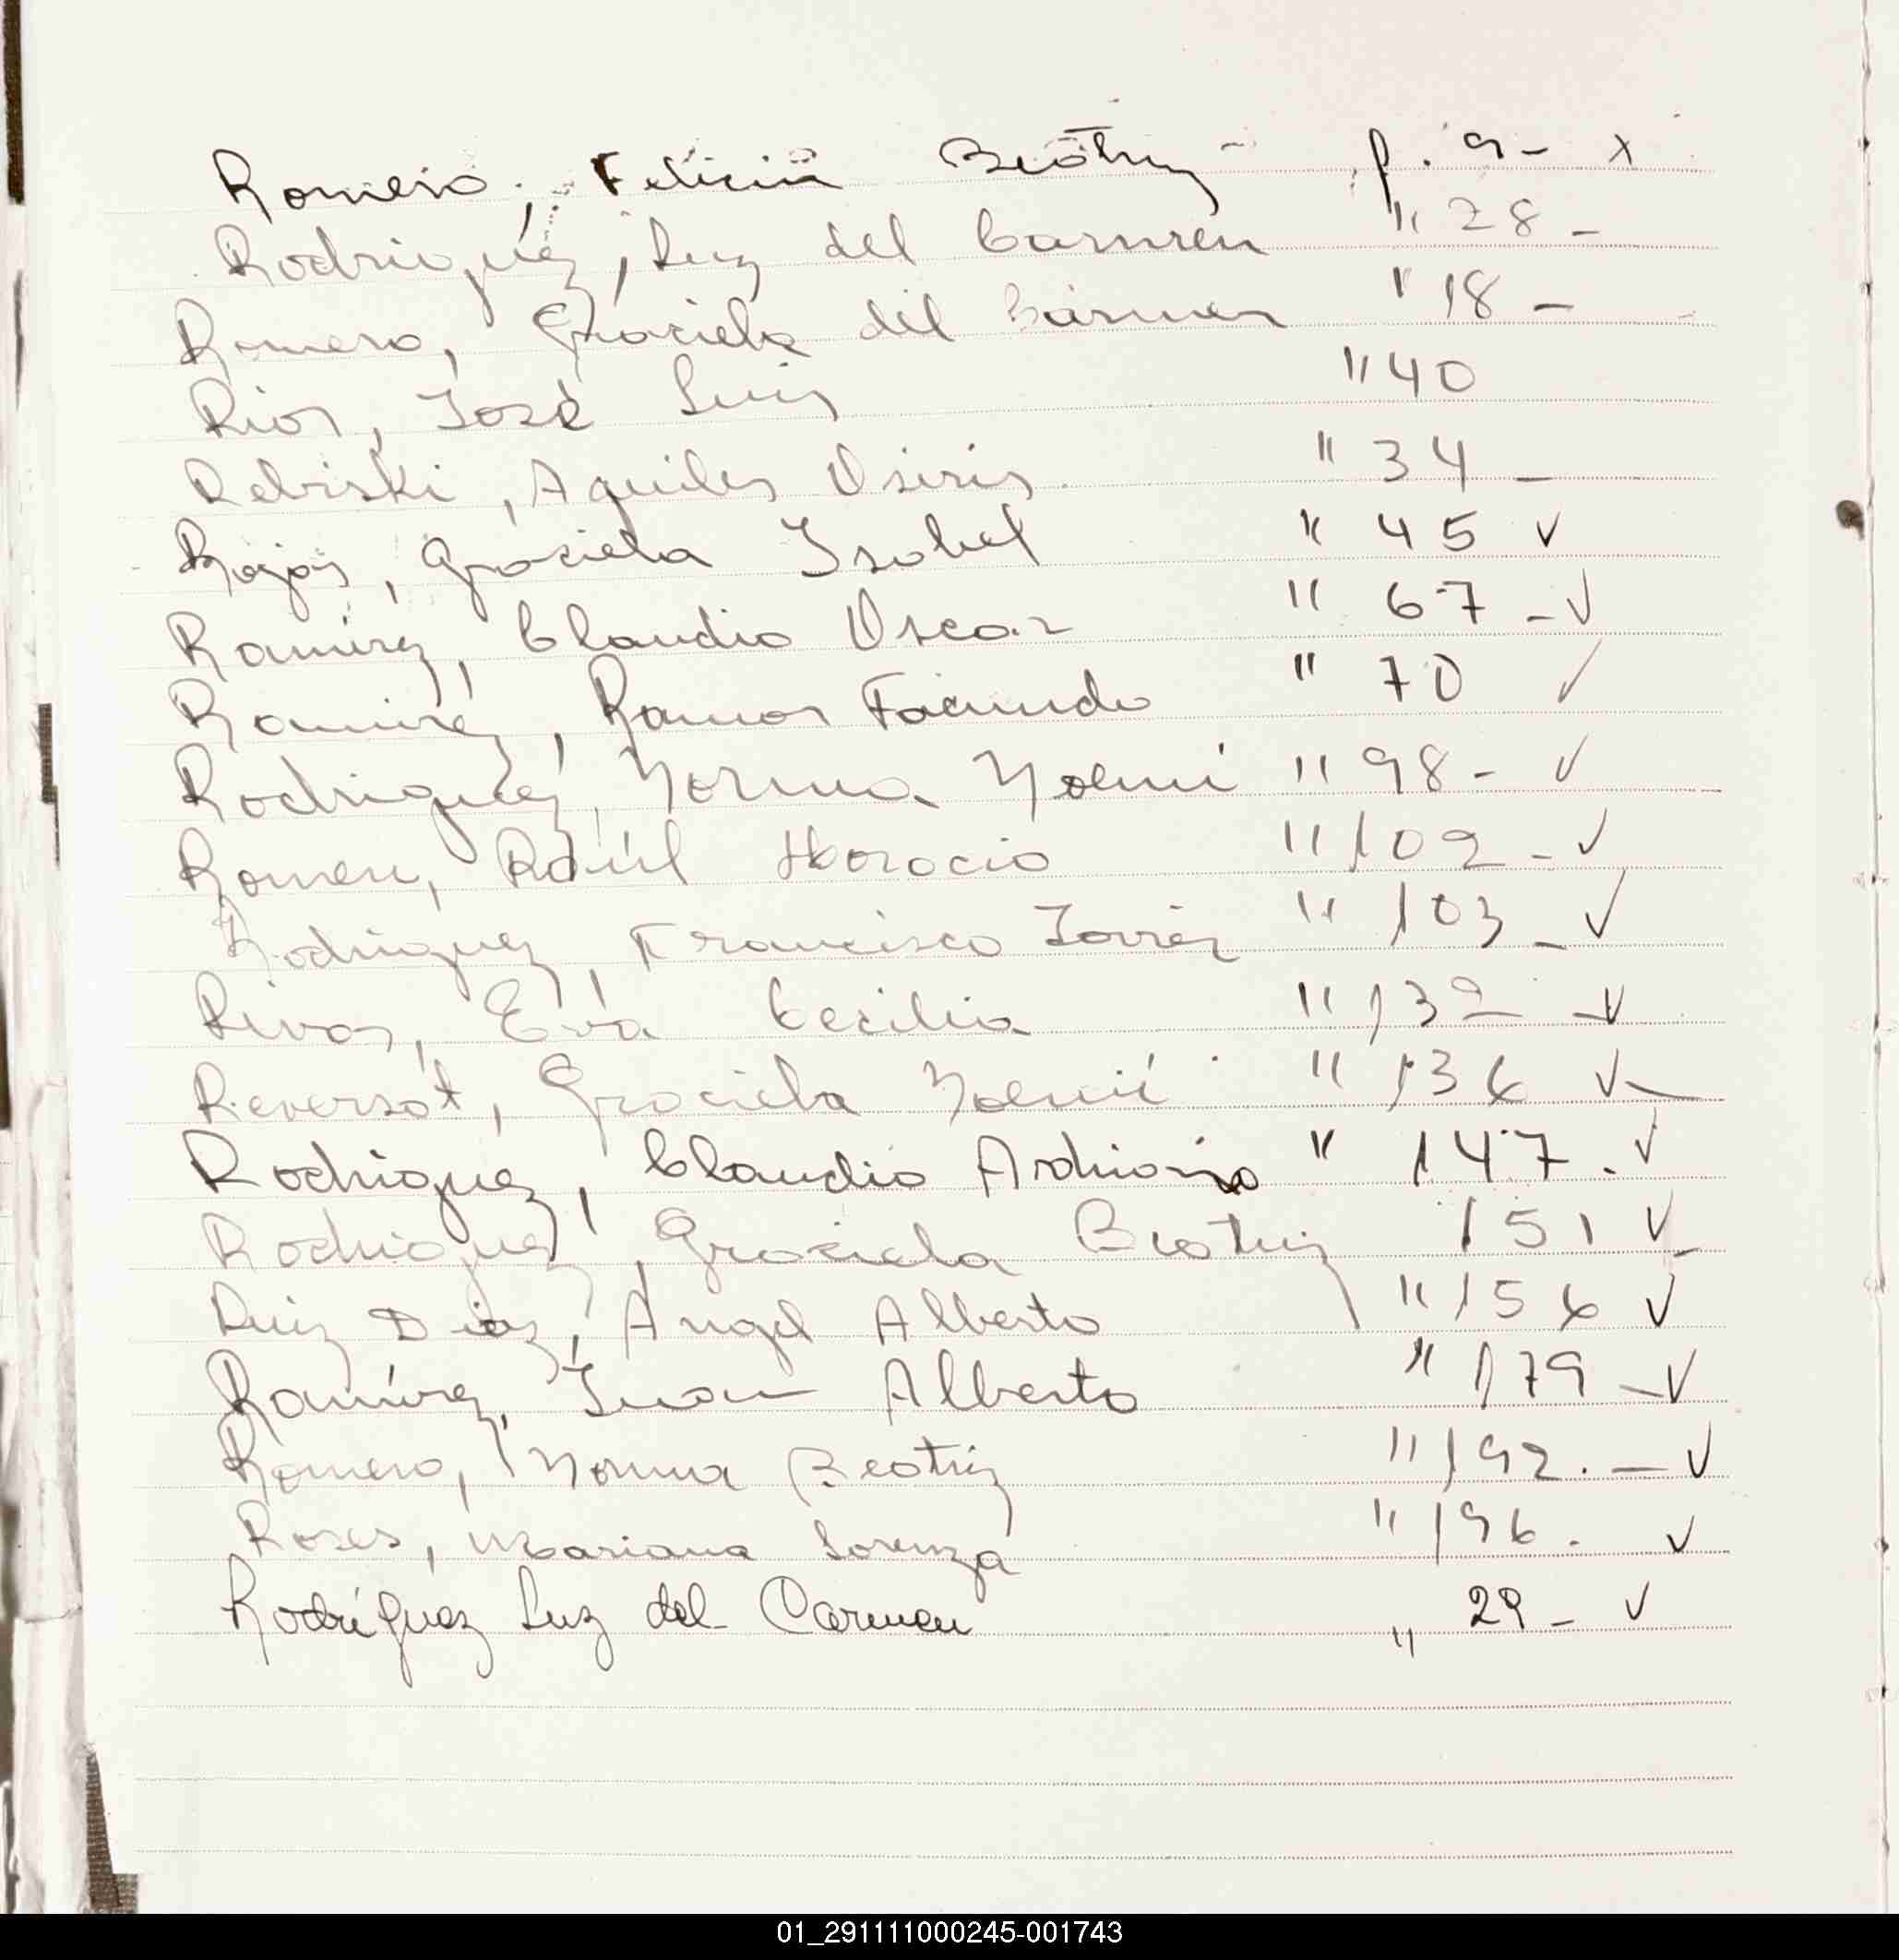 Romero, Felicia Beatriz - p. 9 - x
Rodriguez, Luz del Carmen " 28 -
Romero, Graciela del Carmen " 18 -
Rios, José Luis " 40
Rebiski, Aquiles Osiris " 34 -
Rojas, Graciela Isabel " 45 ✓
Ramirez, Claudio Oscar " 67 - ✓
Ramirez, Ramon Facundo " 70 ✓
Rodriguez, Norma Noemi " 98 - ✓
Romero, Raúl Horacio " 102 - ✓
Rodriguez, Francisco Javier " 103 - ✓
Rivas, Eva Cecilia " 132 - ✓
Reversat, Graciela Noemí " 136 ✓ -
Rodriguez, Claudio Adriano " 147 . ✓
Rodriguez, Graciela Beatriz 151 ✓ -
Ruiz Diaz, Angel Alberto " 156 ✓
Ramírez, Juan Alberto " 179 - ✓
Romero, Norma Beatriz " 192 . - ✓
Roses, Mariana Lorenza " 196 . ✓
Rodríguez Luz del Carmen " 29 - ✓
01_291111000245-001743